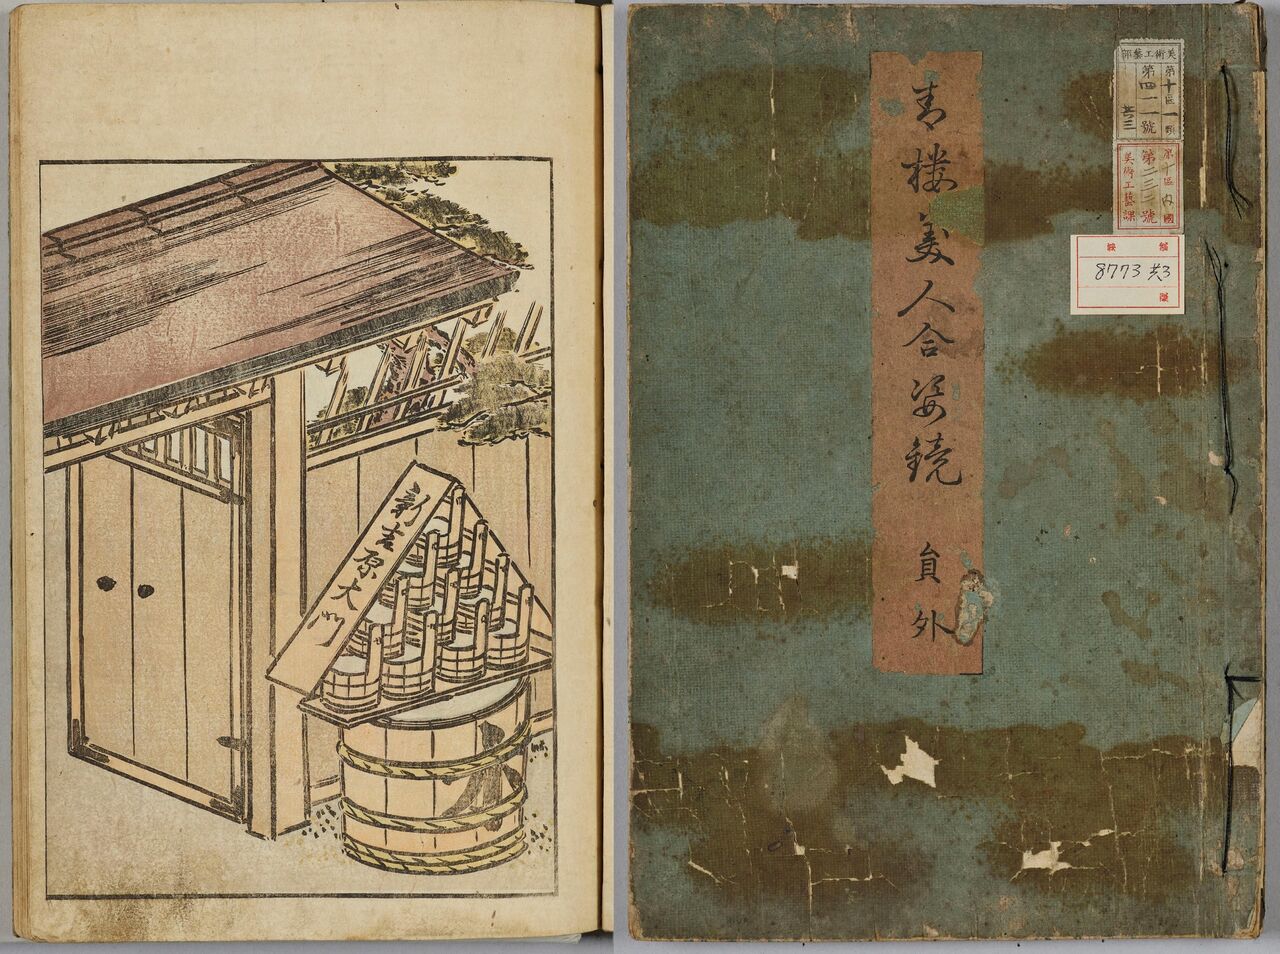 新吉原大門
青楼美人合姿鏡 員外
美術工藝部
第十區一類
第四一一號
共三
第十區内國
第二三三二號
美術工藝課
8773 共3